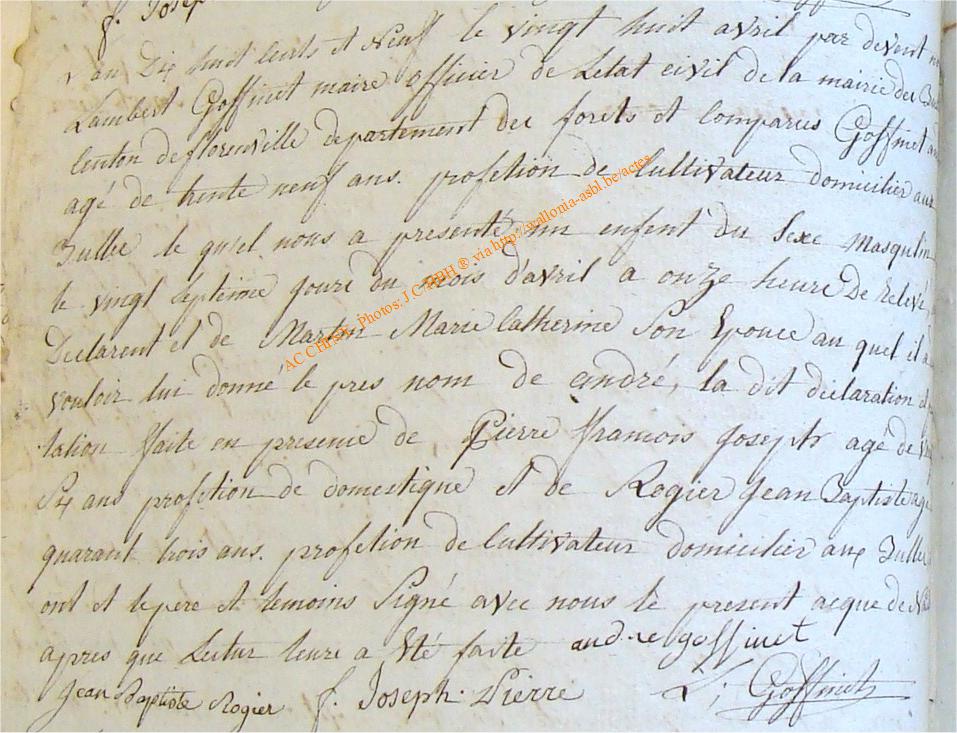 f. Joseph
an Dix huit cents et Neuf le vingt huit avril par devent
Lambert Goffinet maire officier de Letat civil de la mairie des
Centon de florenville departement des forets et Comparus Goffinet
agé de trente neuf ans. profetion de Cultivateur domicilier aux
Bulles le quel nous a presenté un enfent du Sexe Masqulin
le vingt Septeime joure du mois d'avril a onze heure De relevé
Declarent et de Martin Marie Catherine Son Epouce au quel il a
vouloir lui donné le pres nom de andré, la dit déclaration et
tation ffaite en presence de Pierre ffranSois Joseph agé de
Six ans profetion de domestique et de Rogier Jean Baptiste age
quarant trois ans. profetion de Cultivateur domicilier aux Bulles
ont et lepere et temoins Signé avec nous le present acque de
apres que Lectur leure a Eté faite andre goffinet
Jean Baptiste Rogier f. Joseph Pierre L; Goffinet
AC CHINY, Photos: J C ® via http://wallonia-asbl.be/actes